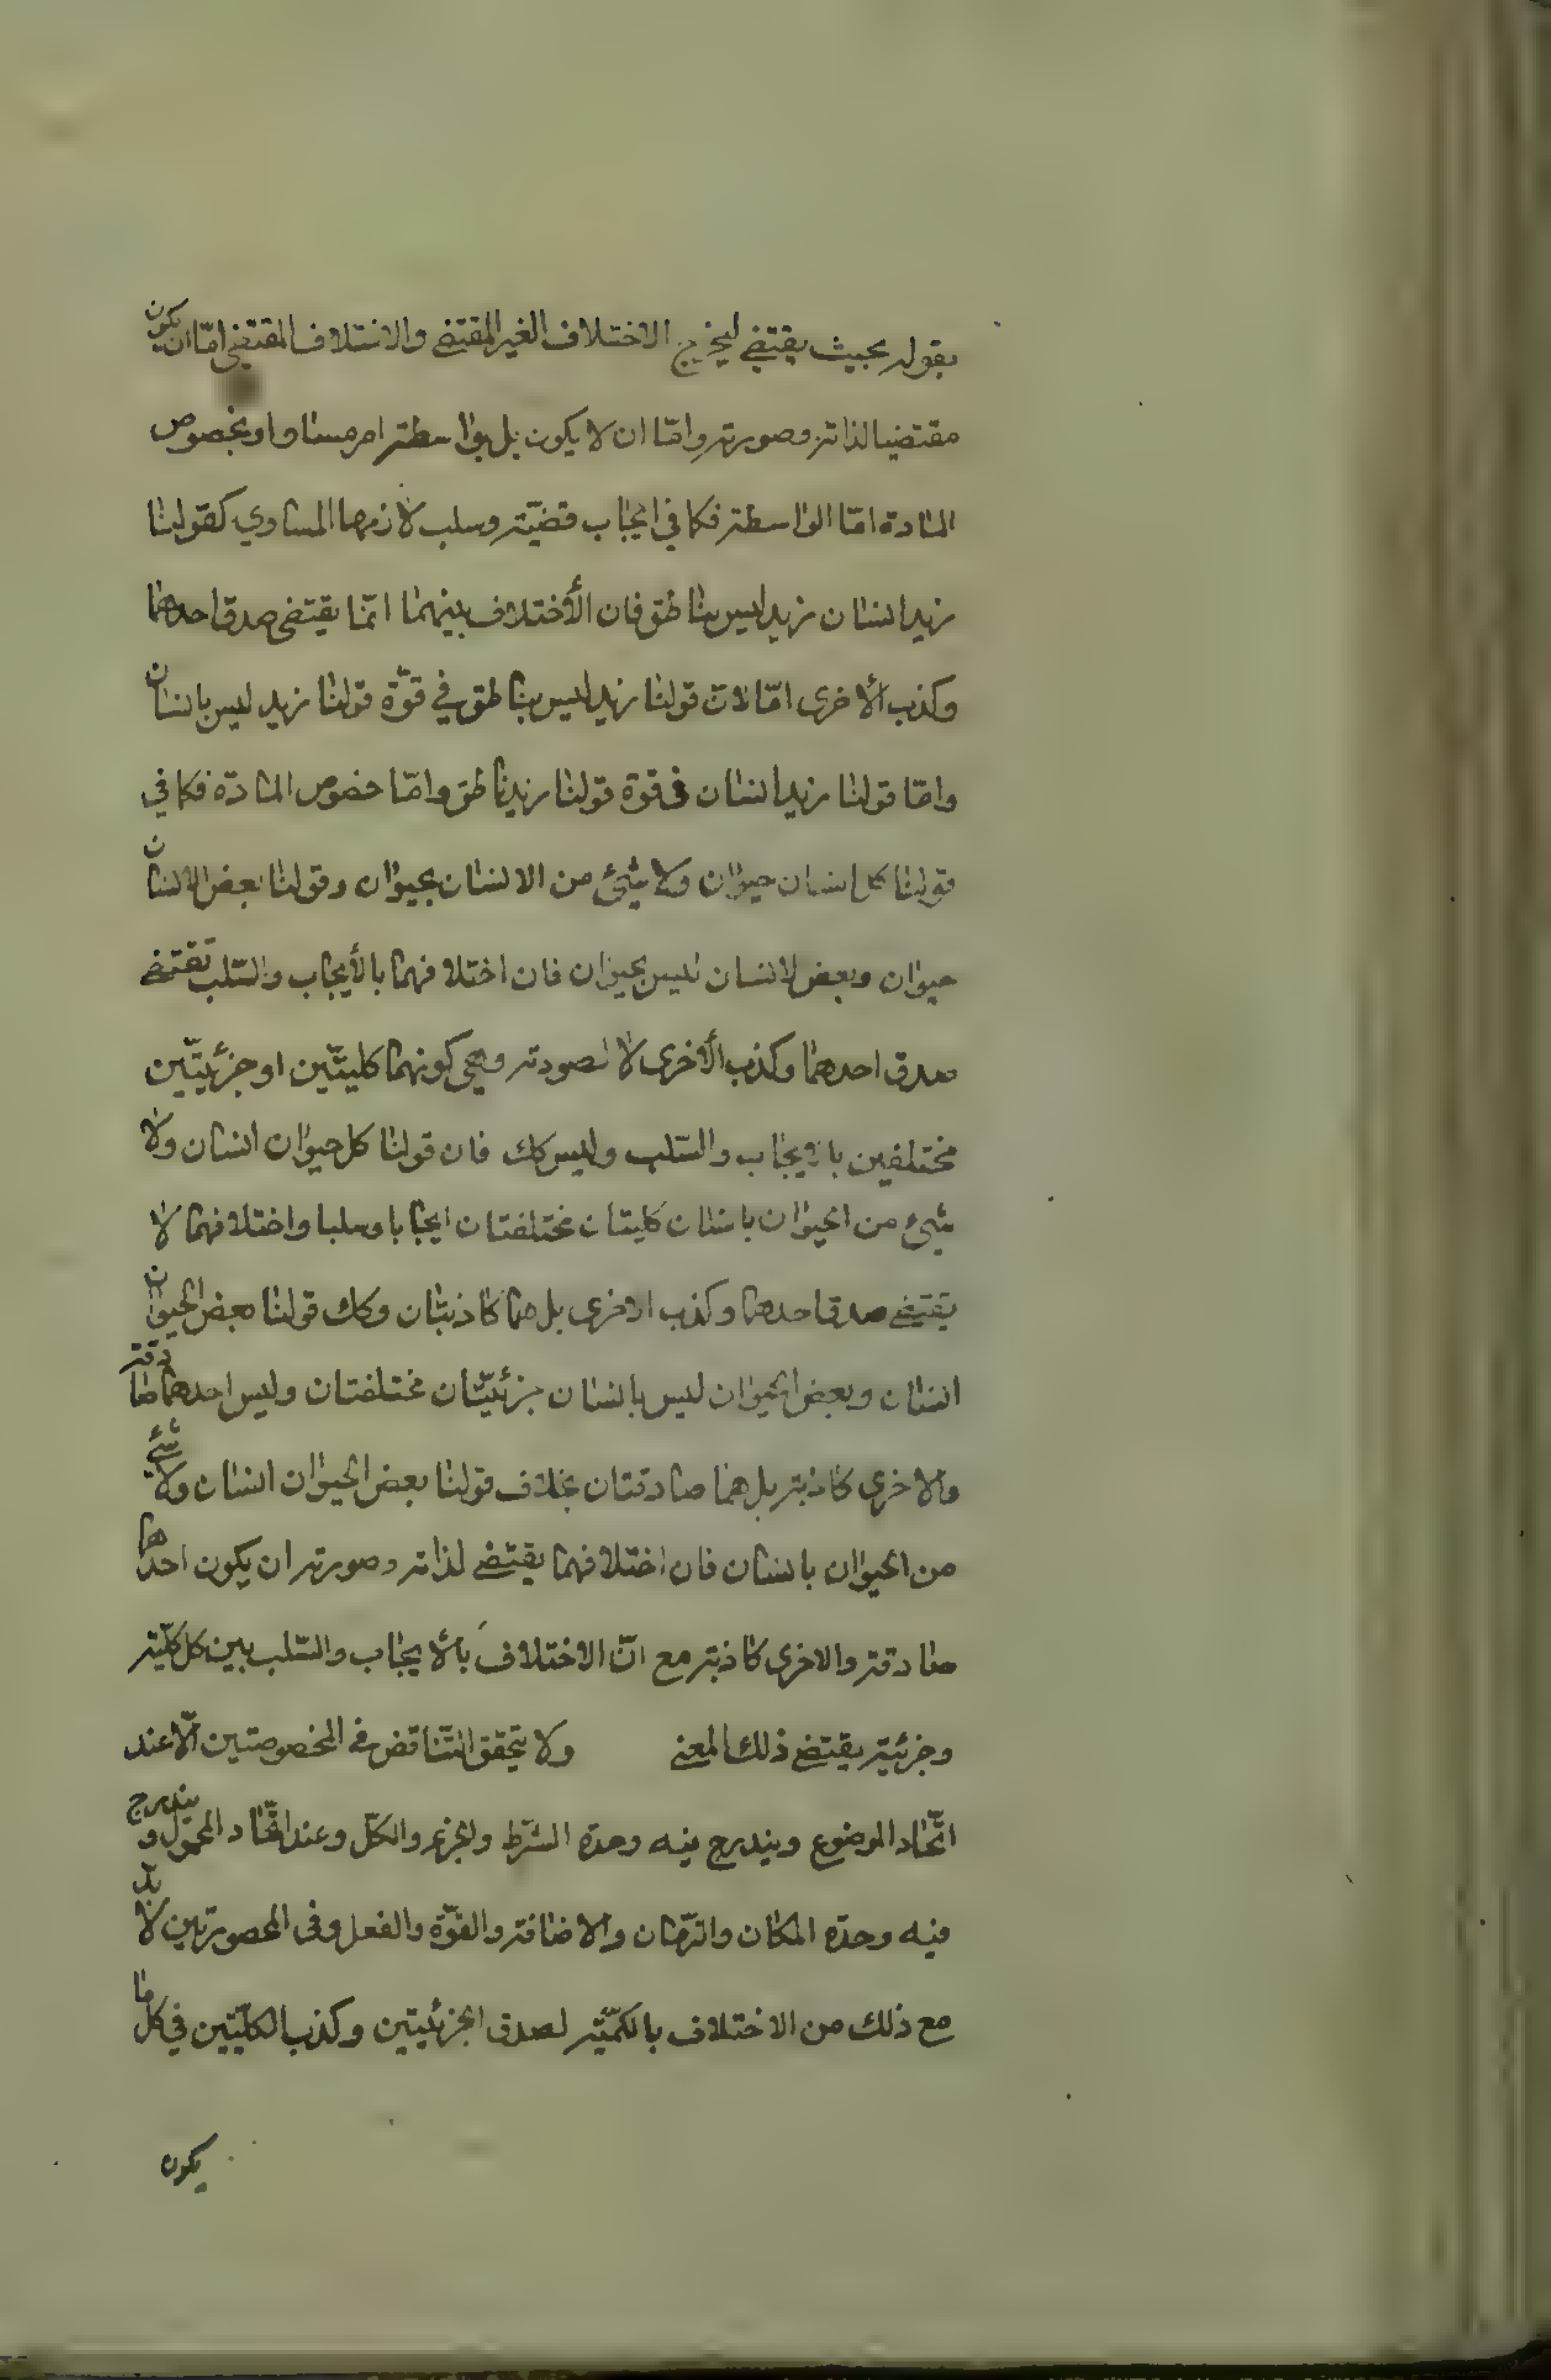 بقوله بحيث يقتضي ليخرج الاختلاف الغير المقتضي والاختلاف المقتضي امّا ان يكون
مقتضيا لذاته وصورته وامّا ان لا يكون بل بواسطة امر مساو او بخصوص
المادة امّا الواسطة فكما في ايجاب قضيّة وسلب لازمها المساوي كقولنا
زيد انسان زيد ليس بناطق فان الأختلاف بينهما انمّا يقتضي صدق احدهما
وكذب الأخرى امّا لانّ قولنا زيد ليس بناطق في قوّة قولنا زيد ليس بانسان
وامّا قولنا زيد انسان في قوة قولنا زيد ناطق وامّا خصوص المادّة فكما في
قولنا كل انسان حيوان ولا شئ من الانسان بحيوان وقولنا بعض الانسان
حيوان وبعض الانسان ليس بحيوان فان اختلافهما بالأيجاب والسّلب تقتضي
صدق احدهما وكذب الأخرى لا لصورته وهي كونهما كليتّين او جزئيتّين
مختلفين بالايجاب والسّلب وليس كك فان قولنا كل حيوان انسان ولا
شئ من الحيوان بانسان كليتان مختلفتان ايجابا وسلبا واختلافهما لا
يقتضي صدق احدهما وكذب الاخرى بل هما كاذبتان وكك قولنا بعض الحيوان
انسان وبعض الحيوان ليس بانسان جزئيتّان مختلفتان وليس احدهما صادقة
والاخرى كاذبة بل هما صادقتان بخلاف قولنا بعض الحيوان انسان ولا شئ
من الحيوان بانسان فان اختلافهما يقتضي لذاته وصورته ان يكون احدهما
صادقة والاخرى كاذبة مع انّ الاختلاف بالأيجاب والسّلب بين كل كليّة
وجزئية يقتضي ذلك المعنى ولا يتحقق التّناقض في المخصوصتين الّا عند
اتّحاد الموضوع ويندرج فيه وحدة الشرّط والجزء والكلّ وعند اتّحاد المحمول ويندرج
فيه وحدة المكان والزّمان والاضافة والقوّة والفعل وفي المحصورتين لا بدّ
مع ذلك من الاختلاف بالكميّة لصدق الجزئيتين وكذب الكليّتين في كل ما
يكون